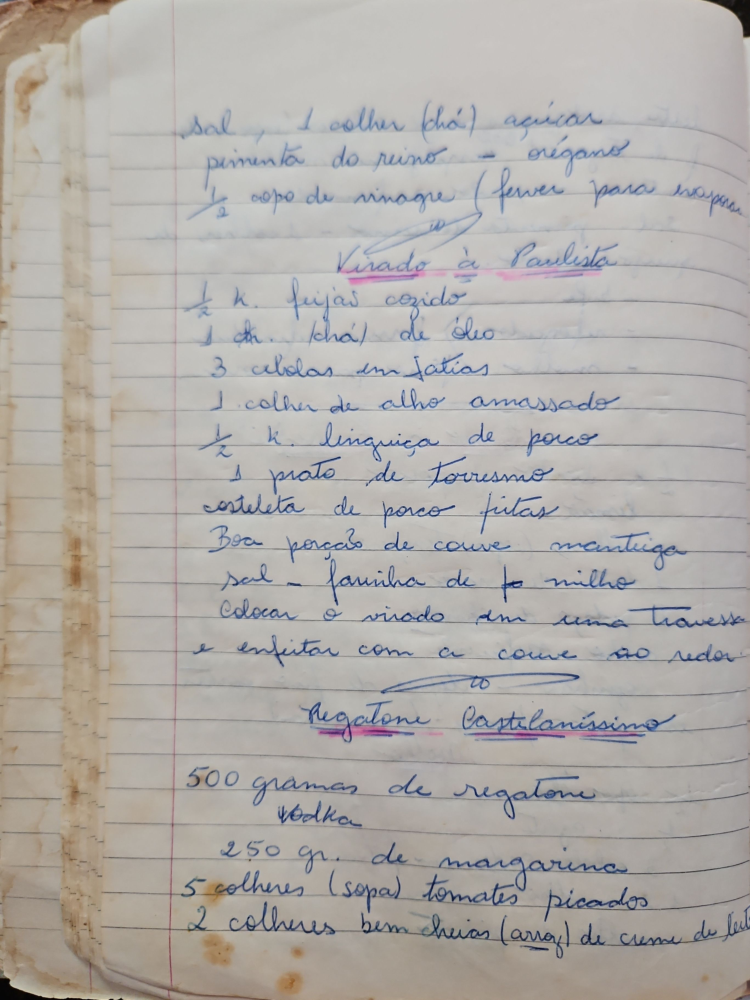 sal, 1 colher (chá) açúcar
pimenta do reino - orégano
1/2 copo de vinagre (ferver para evapora
Virado à Paulista
1/2 k. feijão cozido
1 ch. (chá) de óleo
3 cebolas em fatias
1 colher de alho amassado
1/2 k. linguiça de porco
1 prato de torresmo
costeleta de porco fritas
Boa porção de couve manteiga
sal - farinha de milho
Colocar o virado em uma travess
e enfeitar com a couve ao redor
Regatone Castelaníssimo
500 gramas de regatone
Vodka
250 gr. de margarina
5 colheres (sopa) tomates picados
2 colheres bem cheias (arroz) de creme de leit